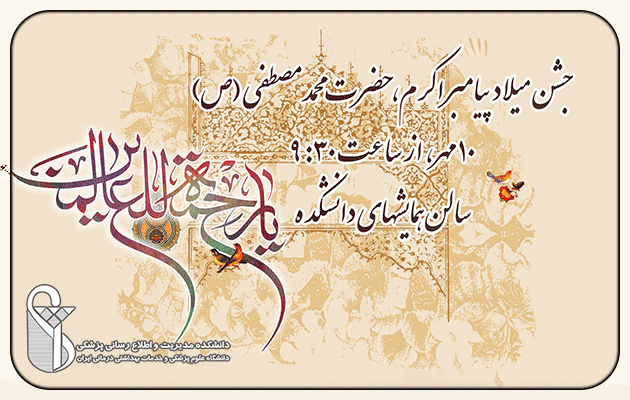 جشن میلاد پیامبر اکرم، حضرت محمد مصطفی (ص)
۱۰ مهر، از ساعت ۹:۳۰
سالن همایشهای دانشکده
یا رحمة للعالمین
دانشکده مدیریت و اطلاع رسانی پزشکی
دانشگاه علوم پزشکی و خدمات بهداشتی درمانی ایران